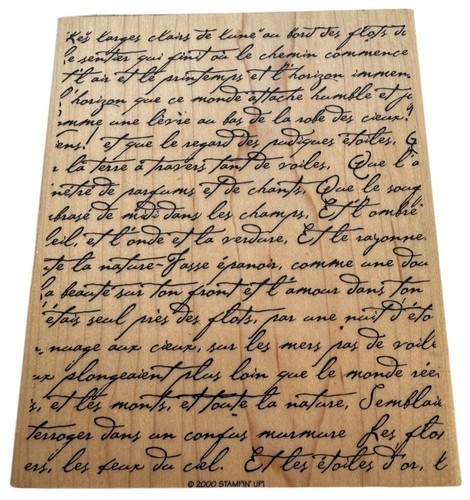 Les larges clairs de lune au bord des flots d
le sentier qui finit où le chemin commence
t l'air et le printemps et l'horizon immen
l'horizon que ce monde attache humble et j
omme une lèvre au bas de la robe des cieux!
iens! et que le regard des pudiques étoiles, Q
r la terre à travers tant de voiles, Que l'a
nétré de parfums et de chants, Que le souf
brasé de midi dans les champs, Et l'ombre
leil, et l'onde et la verdure, Et le rayonne
te la nature Fasse épanoir, comme une dou
la beauté sur ton front et l'amour dans ton
étais seul près des flots, par une nuit d'éto
nuage aux cieux, sur les mers pas de voile
ux plongeaient plus loin que le monde rée
s, et les monts, et toute la nature, Semblaie
terroger dans un confus murmure Les flo
ers, les feux du ciel. Et les étoiles d'or, l
© 2000 STAMPIN' UP!